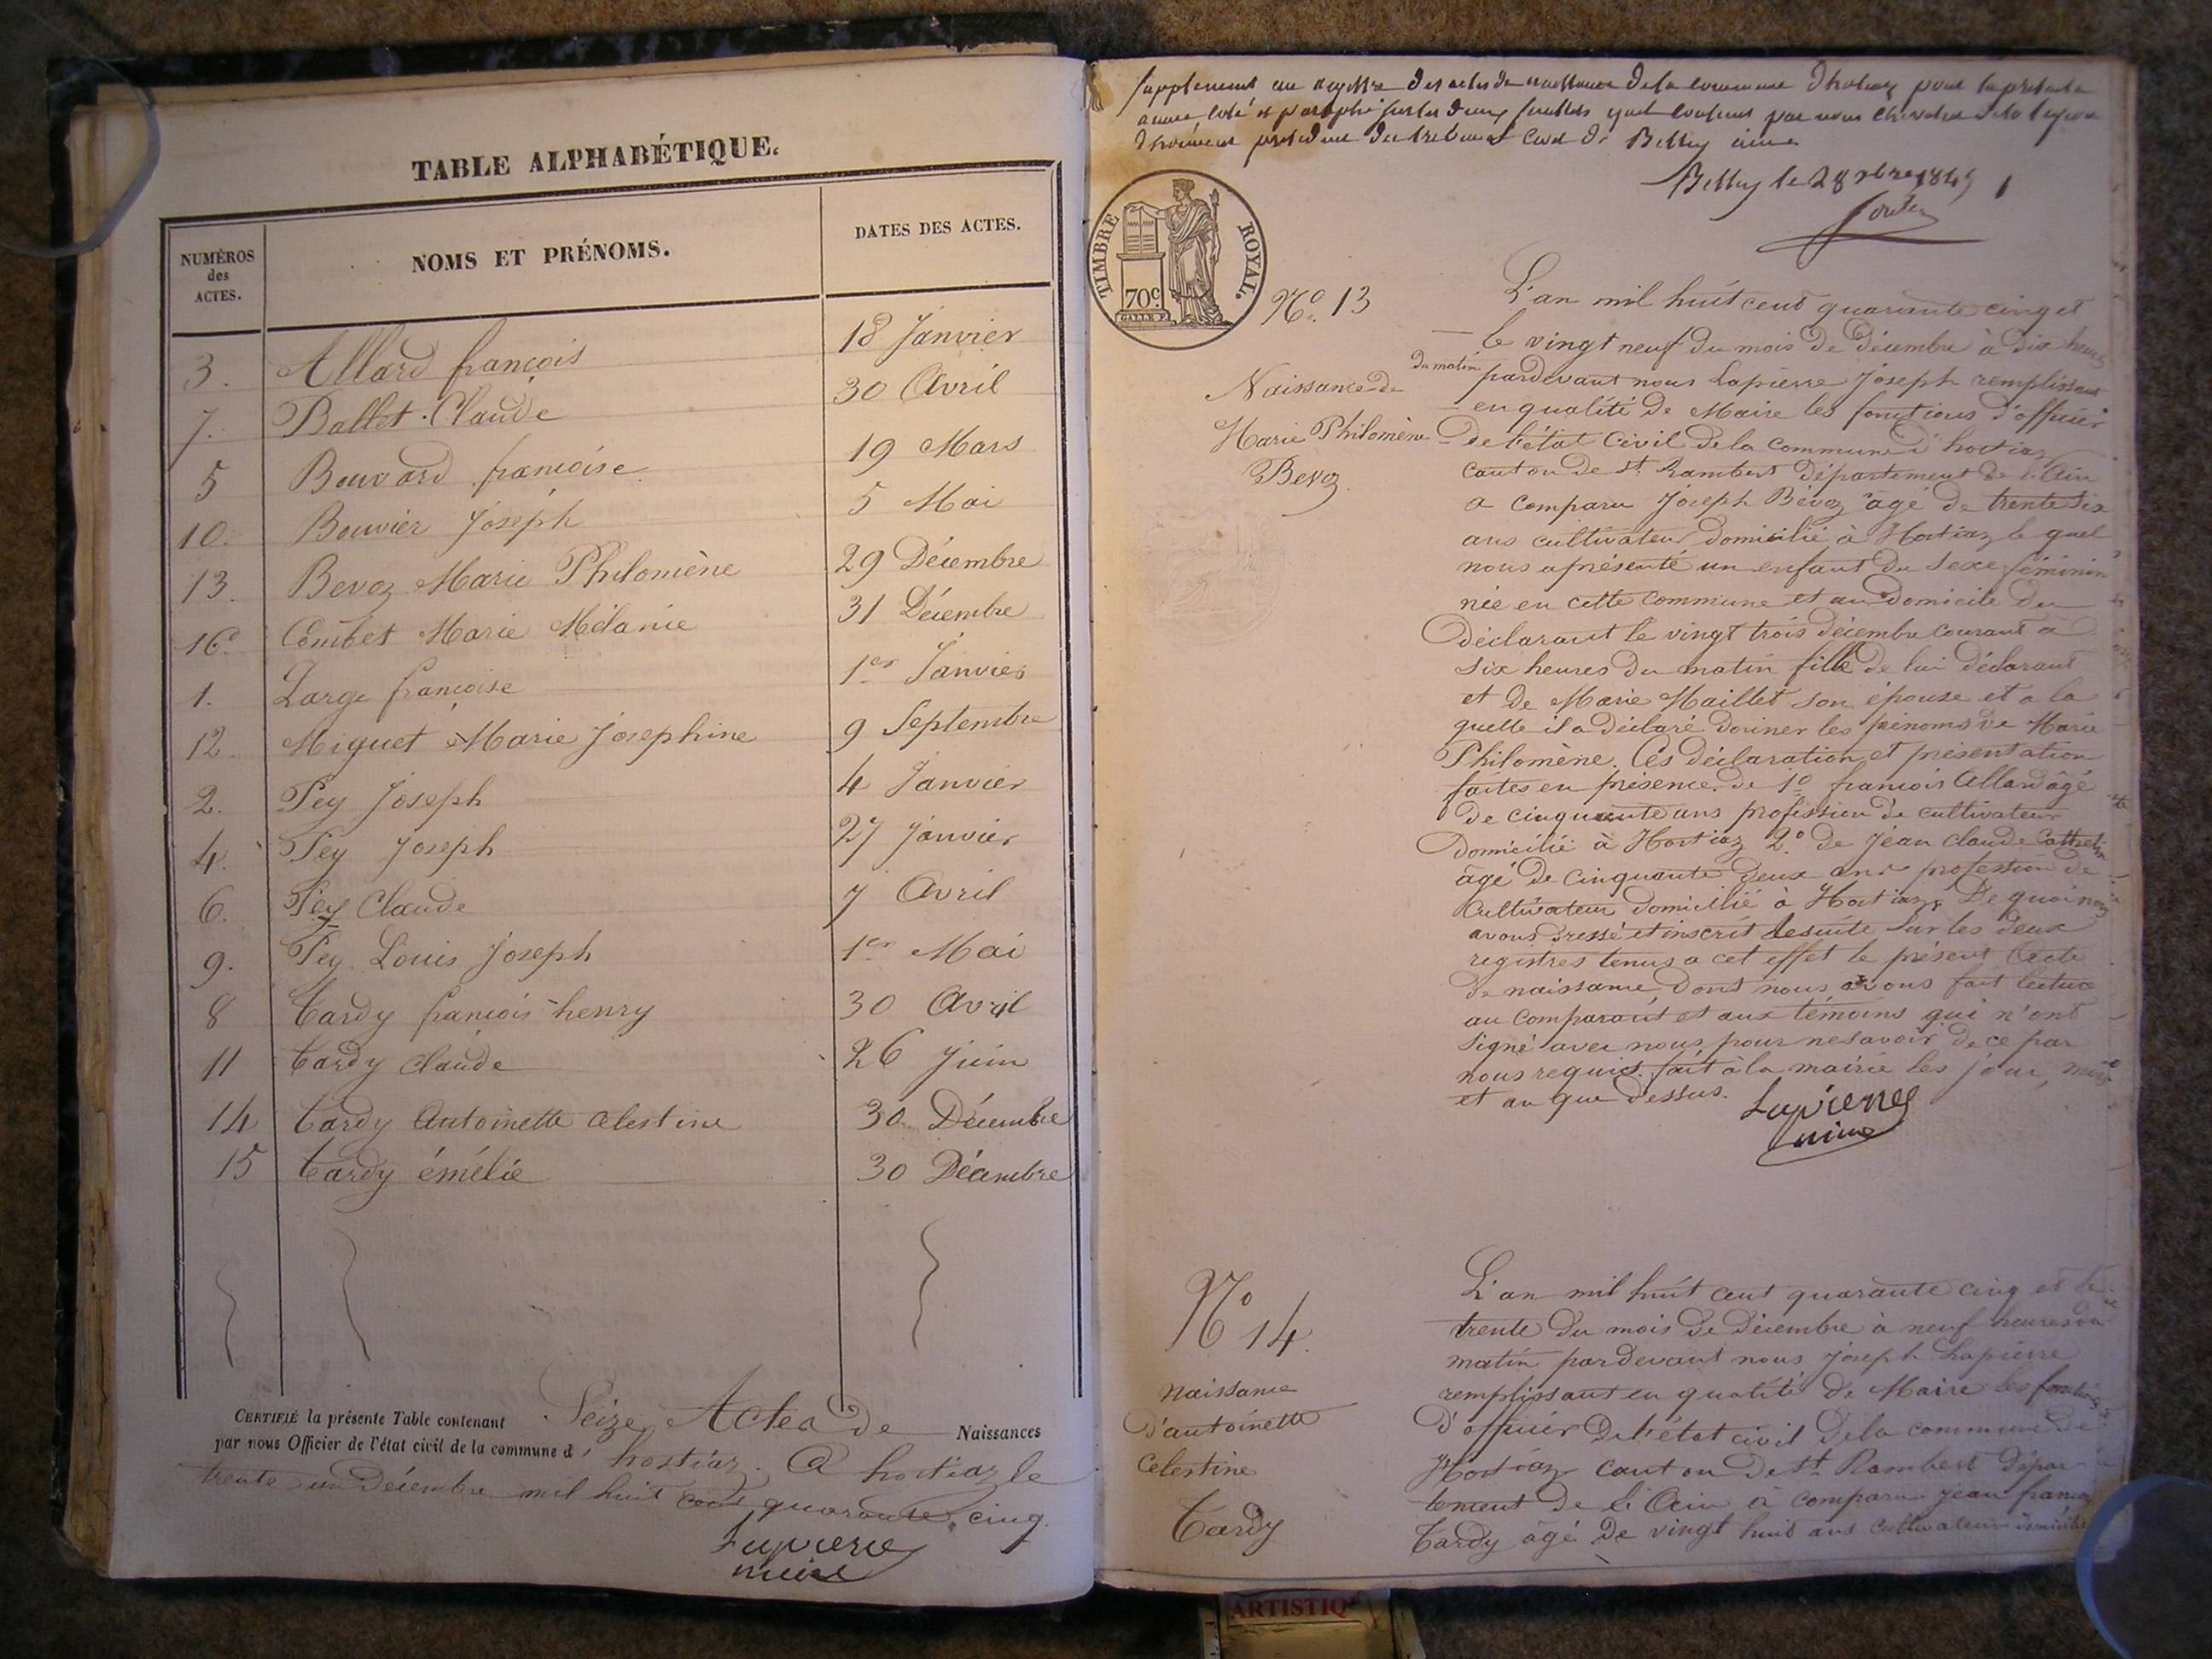 TABLE ALPHABÉTIQUE.
NUMÉROS
des
ACTES.
NOMS ET PRÉNOMS.
DATES DES ACTES.
3. Allard françois 18 Janvier
7. Ballet Claude 30 Avril
5 Bouvard françoise 19 Mars
10. Bouvier Joseph 5 Mai
13. Bevoz Marie Philomène 29 Décembre
16. Combet Marie Mélanie 31 Décembre
1. Large françoise 1er Janvier
12. Miguet Marie Josephine 9 Septembre
2. Pey Joseph 4 Janvier
4. Pey Joseph 27 Janvier
6. Pey Claude 7 Avril
9. Pey Louis Joseph 1er Mai
8 Tardy françois henry 30 Avril
11 Tardy Claude 26 Juin
14 Tardy Antoinette Celestine 30 Décembre
15 Tardy émélie 30 Décembre
CERTIFIÉ la présente Table contenant Seize Actes de Naissances
par nous Officier de l'état civil de la commune d'hostiaz. A hostiaz le
trente un Décembre mil huit cent quarante cinq.
Lapierre
maire
Supplement au registre des actes de naissance de la commune d'hostiaz pour la présente
année coté et paraphé sur les deux feuillets quil contient par nous chevalier de la legion
d'honneur president du tribunal civil de Belley
Belley le 28 xbre 1845
1
TIMBRE ROYAL.
70c.
No. 13
Naissance de
Marie Philomène
Bevoz
L'an mil huit cent quarante cinq et
le vingt neuf du mois de décembre à dix heures
du matin pardevant nous Lapierre Joseph remplissant
en qualité de Maire les fonctions d'officier
de l'état Civil de la commune d'hostiaz
canton de St. Rambert Département de l'Ain
a comparu Joseph Bévoz âgé de trente six
ans cultivateur domicilié à Hostiaz le quel
nous a présenté un enfant du Sexe féminin
née en cette commune et au domicile du
déclarant le vingt trois décembre courant à
six heures du matin fille de lui déclarant
et de Marie Maillet son épouse et a la
quelle il a déclaré donner les prénoms de Marie
Philomène. Ces déclaration et présentation
faites en présence de 1o françois Allard âgé
de cinquante ans profession de cultivateur
domicilié à Hostiaz 2o de Jean Claude
âgé de cinquante deux ans profession de
cultivateur domicilié à Hostiaz. De quoi nous
avons dressé et inscrit desuite sur les deux
registres tenus a cet effet le présent Acte
de naissance, dont nous avons fait lecture
au comparant et aux témoins qui n'ont
signé avec nous pour ne savoir de ce par
nous requis. fait à la mairie les jour, mois
et an que dessus.
Lapierre
maire
No 14.
naissance
d'antoinette
Celestine
Tardy
L'an mil huit cent quarante cinq et le
trente du mois de décembre à neuf heures du
matin pardevant nous Joseph Lapierre
remplissant en qualité de Maire les fonctions
d'officier de l'état civil de la commune de
Hostiaz canton de St. Rambert Dépar-
tement de l'Ain à comparu Jean françois
Tardy âgé de vingt huit ans cultivateur domicilié
ARTISTIQ